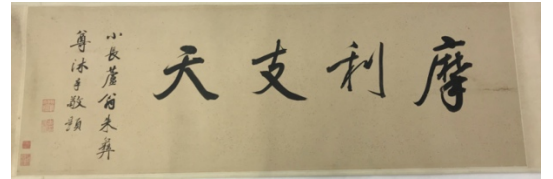 摩利支天
小長蘆翁朱彝
尊沐手敬題